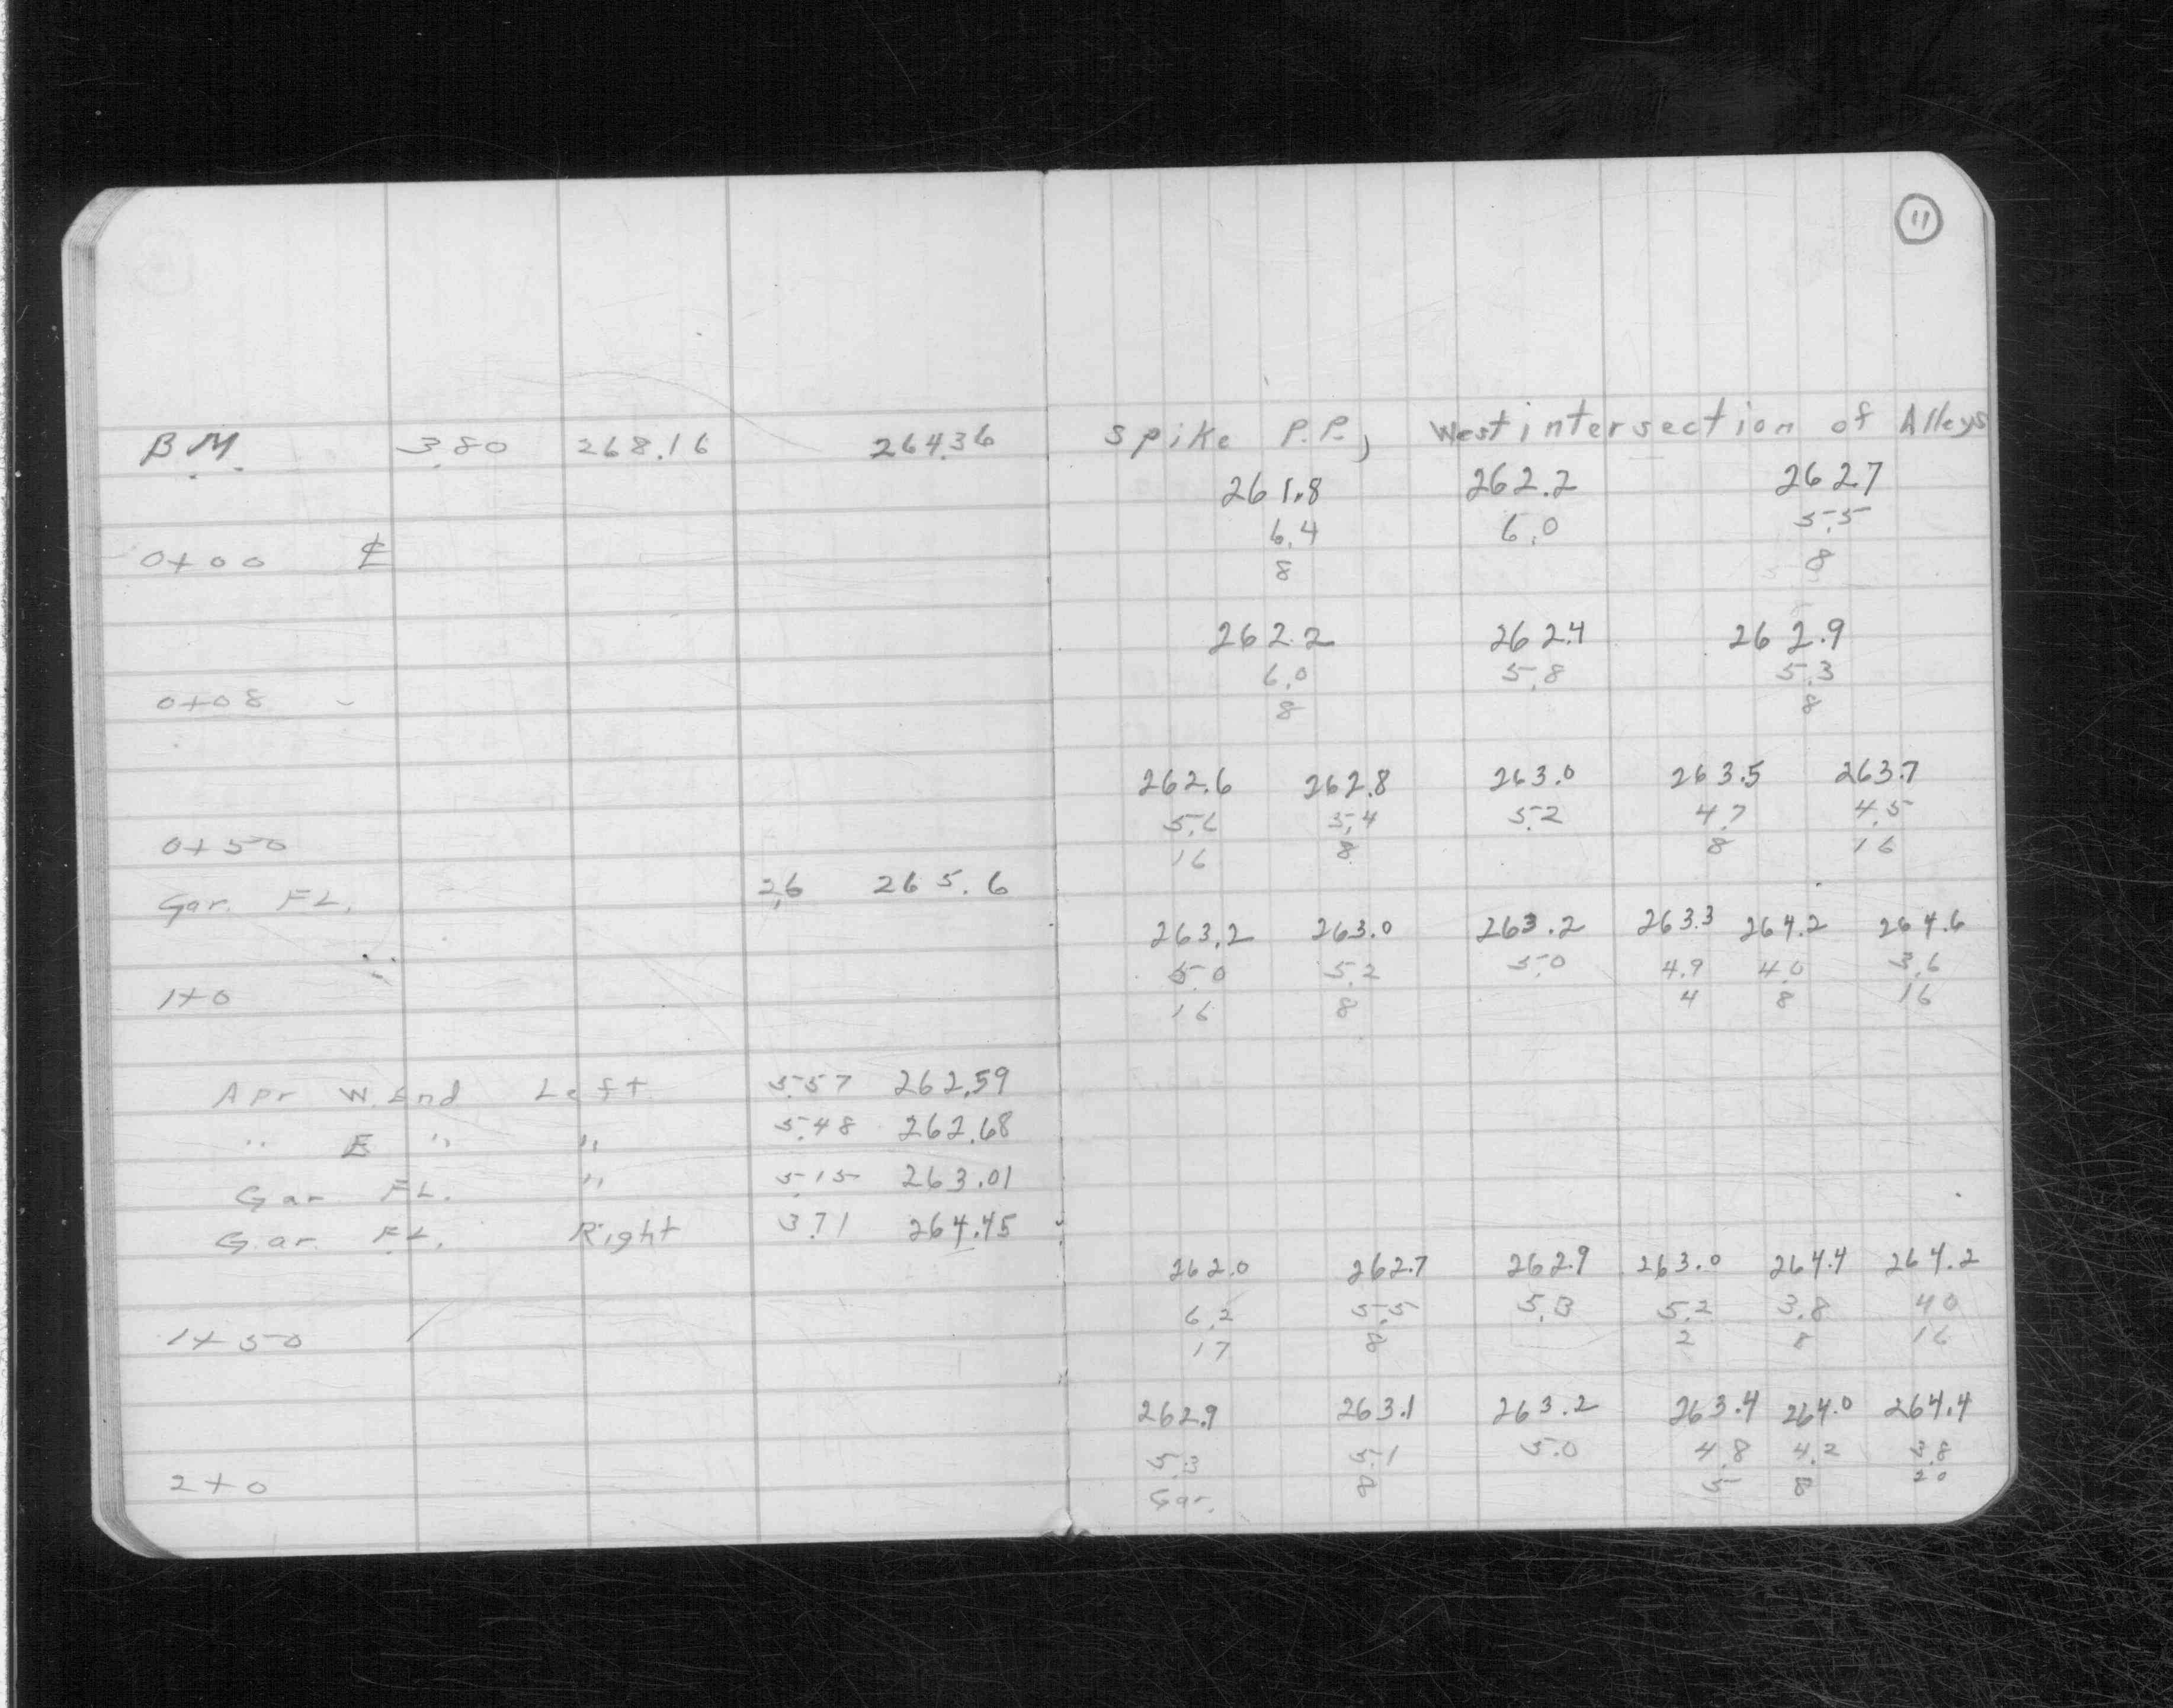 11
B.M. 3.80 268.16 264.36 Spike P.P., West intersection of Alleys
261.8 262.2 262.7
6.4 6.0 5.5
0+00 ₵ 8 8
262.2 262.4 262.9
6.0 5.8 5.3
0+08 8 8
262.6 262.8 263.0 263.5 263.7
5.6 5.4 5.2 4.7 4.5
0+50 16 8 8 16
Gar. FL. 2.6 265.6
263.2 263.0 263.2 263.3 264.2 264.6
5.0 5.2 5.0 4.9 4.0 3.6
1+0 16 8 4 8 16
Apr W. End Left 5.57 262.59
" E " " 5.48 262.68
Gar FL. " 5.15 263.01
Gar. FL. Right 3.71 264.45
262.0 262.7 262.9 263.0 264.4 264.2
6.2 5.5 5.3 5.2 3.8 4.0
1+50 17 8 2 8 16
262.9 263.1 263.2 263.4 264.0 264.4
5.3 5.1 5.0 4.8 4.2 3.8
2+0 Gar. 8 5 8 20